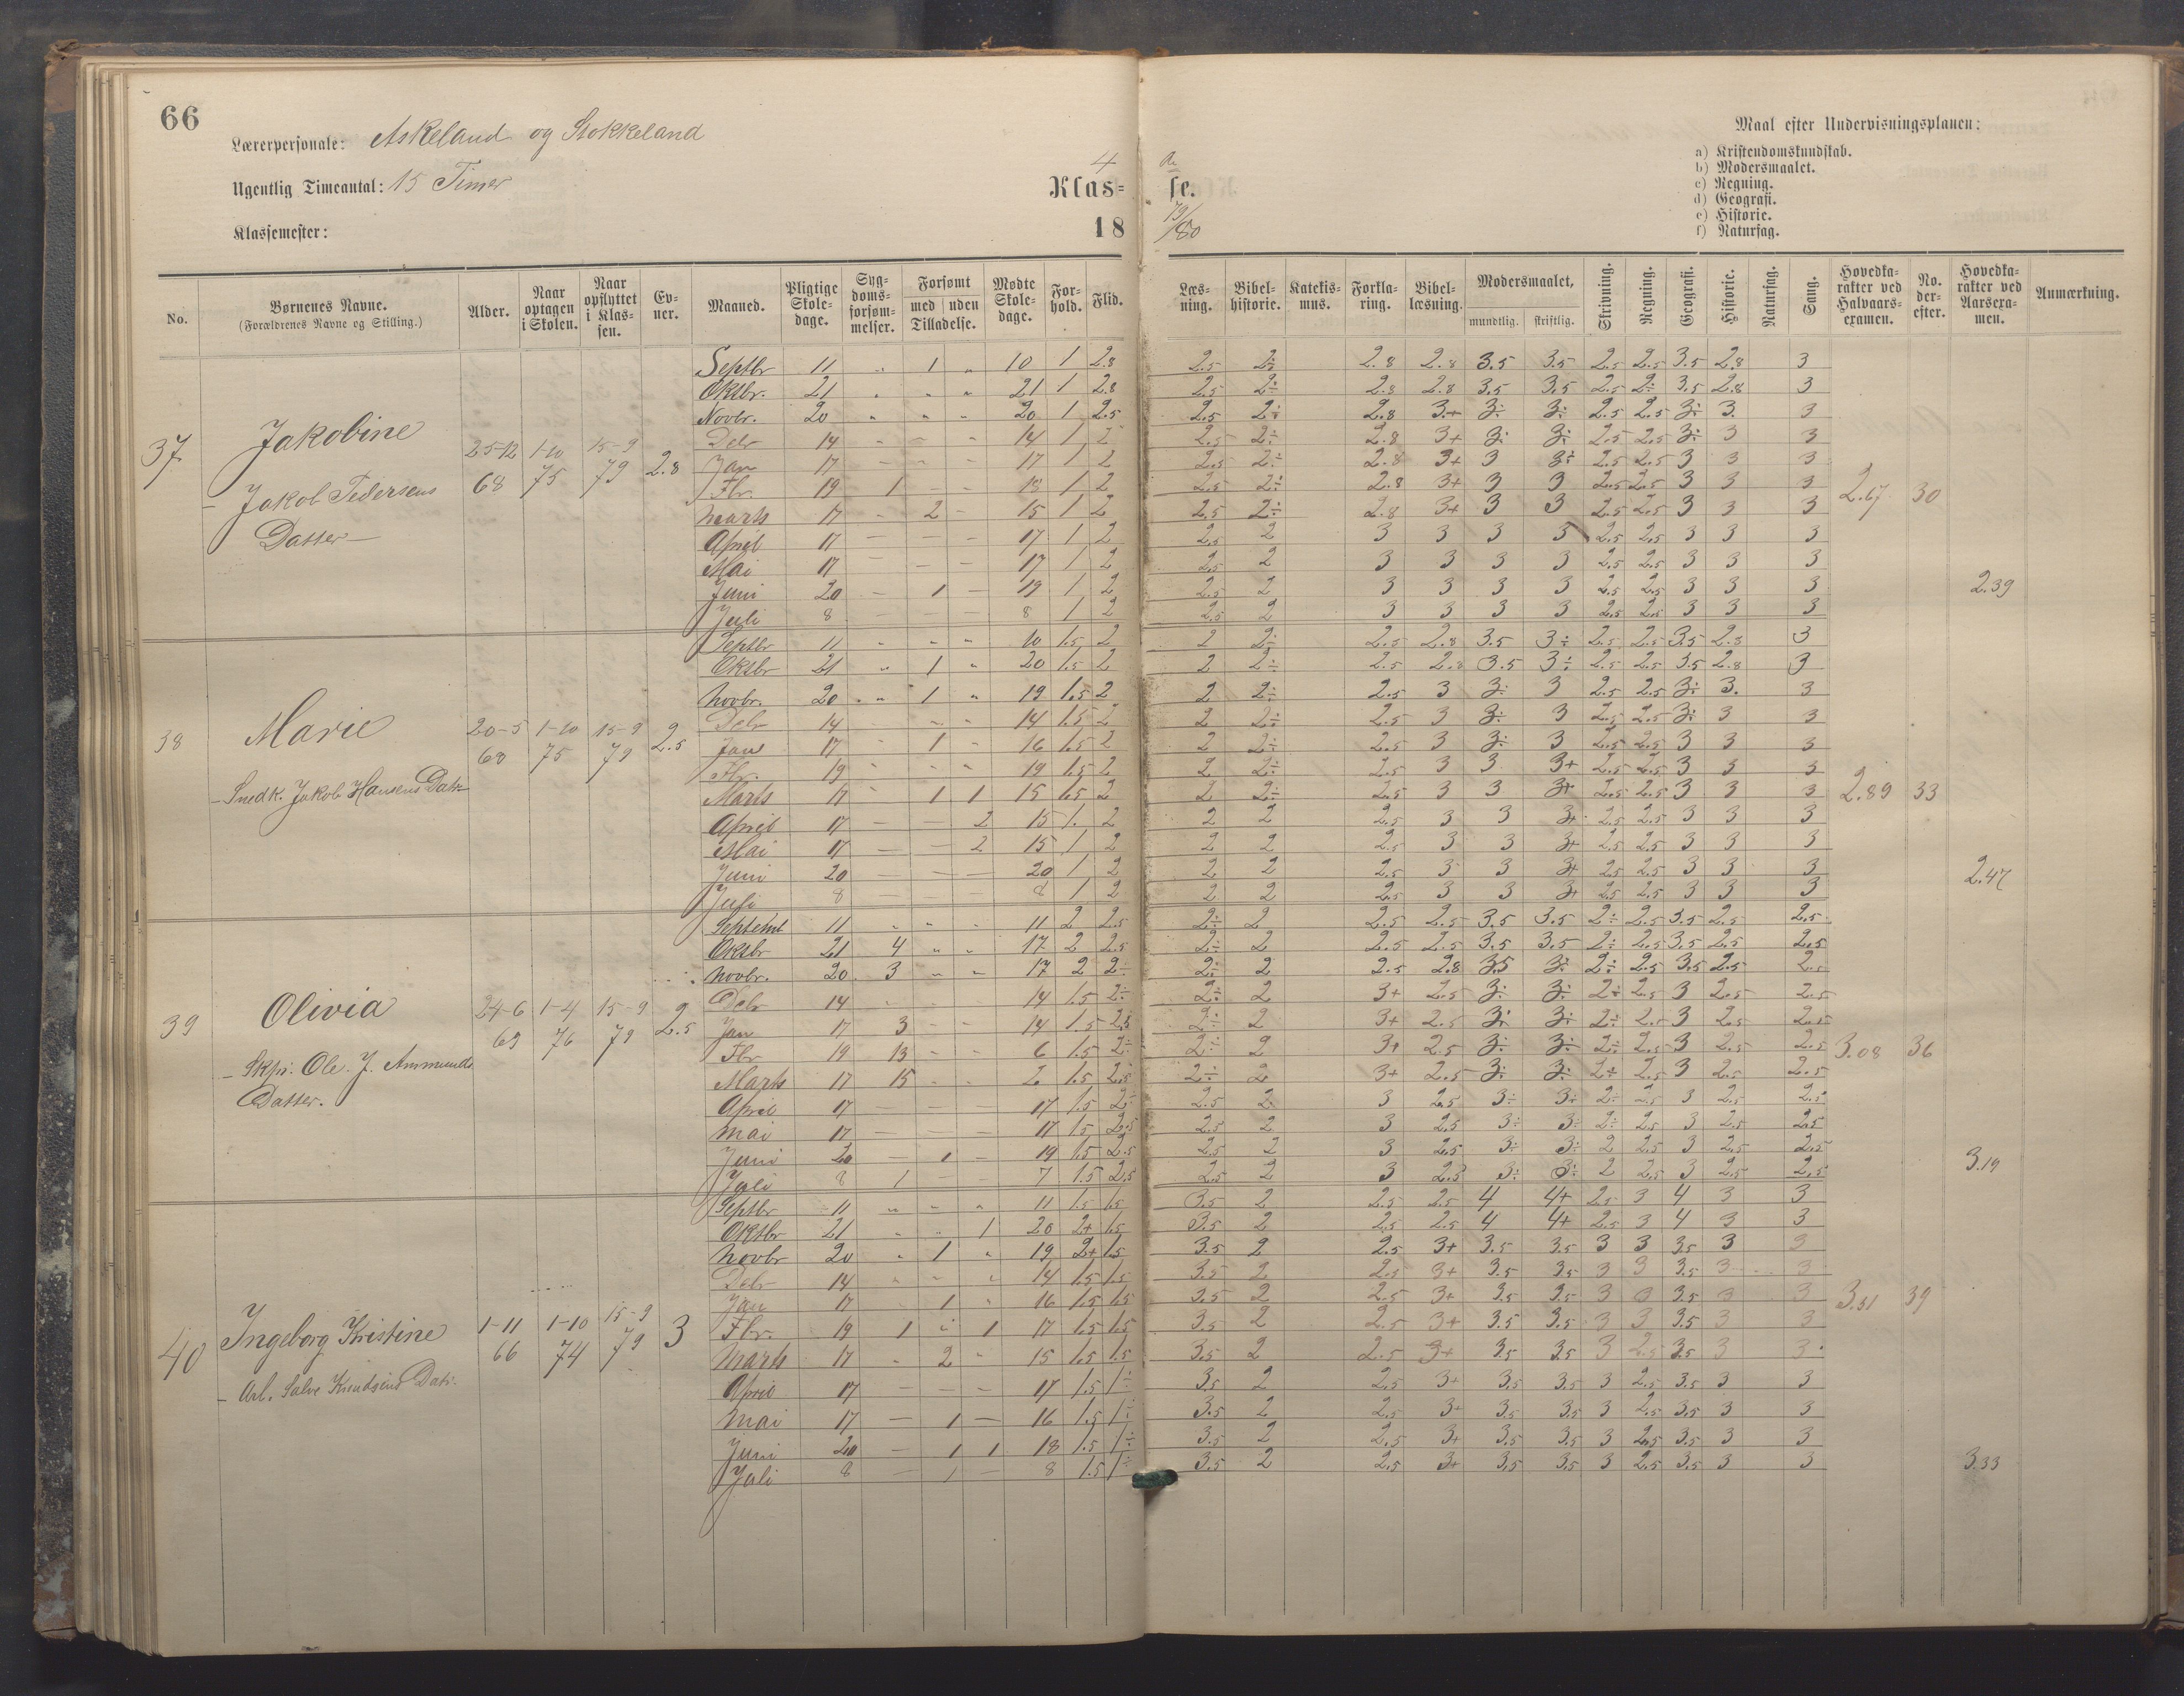 66
Lærerpersonale: Askeland og Stokkeland
Ugentlig Timeantal: 15 Timer
Klassemester:
4de
Klasse.
18 79/80
Maal efter Undervisningsplanen:
a) Kristendomskundskab.
b) Modersmaalet.
c) Regning.
d) Geografi.
e) Historie.
f) Naturfag.
No. | Børnenes Navne. (Forældrenes Navne og Stilling.) | Alder. | Naar optagen i Skolen. | Naar opflyttet i Klassen. | Evner. | Maaned. | Pligtige Skoledage. | Sygdomsforsømmelser. | Forsømt med uden Tilladelse. | Mødte Skoledage. | Forhold. | Flid. | Læsning. | Bibelhistorie. | Katekismus. | Forklaring. | Bibellæsning. | Modersmaalet, mundtlig. skriftlig. | Skrivning. | Regning. | Geografi. | Historie. | Naturfag. | Sang. | Hovedkarakter ved Halvaarsexamen. | No. derefter. | Hovedkarakter ved Aarsexamen. | Anmærkning.
37 Jakobine - Jakob Pedersens Datter 25-12 68 1-10 75 15-9 79 2.8
Septbr 11 " 1 " 10 1 2.8 2.5 2÷ 2.8 2.8 3.5 3.5 2.5 2.5 3.5 2.8 3
Oktbr. 21 " " " 21 1 2.8 2.5 2÷ 2.8 2.8 3.5 3.5 2.5 2÷ 3.5 2.8 3
Novbr. 20 " " " 20 1 2.5 2.5 2÷ 2.8 3+ 3÷ 3÷ 2.5 2.5 3÷ 3. 3
Debr 14 - - - 14 1 2 2.5 2÷ 2.8 3+ 3÷ 3÷ 2.5 2.5 3÷ 3 3
Jan 17 - - - 17 1 2 2.5 2÷ 2.8 3+ 3 3÷ 2.5 2.5 3 3 3
Fbr. 19 1 - - 18 1 2 2.5 2÷ 2.8 3+ 3 3 2.5 2.5 3 3 3
Marts 17 - 2 - 15 1 2 2.5 2÷ 2.8 3+ 3 3 2.5 2.5 3 3 3 2.67 30
April 17 - - - 17 1 2 2.5 2 3 3 3 3 2.5 2.5 3 3 3
Mai 17 - - - 17 1 2 2.5 2 3 3 3 3 2.5 2.5 3 3 3
Juni 20 - 1 - 19 1 2 2.5 2 3 3 3 3 2.5 2.5 3 3 3 2.39
Juli 8 - - - 8 1 2 2.5 2 3 3 3 3 2.5 2.5 3 3 3
38 Marie - Snedk. Jakob Hansens Datr 20-5 68 1-10 75 15-9 79 2.5
Septbr 11 " " " 10 1.5 2 2 2÷ 2.5 2.8 3.5 3÷ 2.5 2.5 3.5 2.8 3
Oktbr 21 " 1 " 20 1.5 2 2 2÷ 2.5 2.8 3.5 3÷ 2.5 2.5 3.5 2.8 3
Novbr. 20 " 1 " 19 1.5 2 2 2÷ 2.5 3 3÷ 3 2.5 2.5 3÷ 3. 3
Debr 14 - - - 14 1.5 2 2 2÷ 2.5 3 3÷ 3 2.5 2.5 3÷ 3 3
Jan 17 - 1 - 16 1.5 2 2 2÷ 2.5 3 3÷ 3 2.5 2.5 3 3 3
Fbr. 19 " " " 19 1.5 2 2 2÷ 2.5 3 3 3+ 2.5 2.5 3 3 3
Marts 17 " 1 1 15 1.5 2 2 2÷ 2.5 3 3 3+ 2.5 2.5 3 3 3 2.89 33
April 17 - - 2 15 1. 2 2 2 2.5 3 3 3+ 2.5 2.5 3 3 3
Mai 17 - - 2 15 1 2 2 2 2.5 3 3 3+ 2.5 2.5 3 3 3
Juni 20 - - - 20 1 2 2 2 2.5 3 3 3+ 2.5 2.5 3 3 3 2.47
Juli 8 - - - 8 1 2 2 2 2.5 3 3 3+ 2.5 2.5 3 3 3
39 Olivia - Skpr: Ole. J. Ammunds Datter. 24-6 69 1-4 76 15-9 79 2.5
Septembr 11 " " " 11 2 2.5 2÷ 2 2.5 2.5 3.5 3.5 2÷ 2.5 3.5 2.5 2.5
Oktbr 21 4 " " 17 2 2.5 2÷ 2 2.5 2.5 3.5 3.5 2÷ 2.5 3.5 2.5 2.5
Novbr. 20 3 " " 17 2 2÷ 2÷ 2 2.5 2.8 3.5 3÷ 2÷ 2.5 3.5 2.5 2.5
Debr 14 - - - 14 1.5 2÷ 2÷ 2 3+ 2.5 3÷ 3÷ 2÷ 2.5 3 2.5 2.5
Jan 17 3 - - 14 1.5 2.5 2÷ 2 3+ 2.5 3÷ 3÷ 2÷ 2.5 3 2.5 2.5
Fbr 19 13 - - 6 1.5 2÷ 2÷ 2 3+ 2.5 3÷ 3÷ 2÷ 2.5 3 2.5 2.5 3.08 36
Marts 17 15 - - 2 1.5 2.5 2÷ 2 3+ 2.5 3÷ 3÷ 2+ 2.5 3 2.5 2.5
April 17 - - - 17 1.5 2÷ 2.5 2 3 2.5 3÷ 3÷ 2÷ 2.5 3 2.5 2.5
Mai 17 - - - 17 1.5 2.5 2.5 2 3 2.5 3÷ 3÷ 2÷ 2.5 3 2.5 2.5
Juni 20 - 1 - 19 1.5 2.5 2.5 2 3 2.5 3÷ 3÷ 2 2.5 3 2.5 2.5 3.19
Juli 8 1 - - 7 1.5 2.5 2.5 2 3 2.5 3÷ 3÷ 2 2.5 3 2.5 2.5
40 Ingeborg Kristine - Arb. Salve Knudsens Datr. 1-11 66 1-10 74 15-9 79 3
Septbr 11 " " " 11 1.5 1.5 3.5 2 2.5 2.5 4 4+ 2.5 3 4 3 3
Oktbr 21 " " 1 20 2+ 1.5 3.5 2 2.5 2.5 4 4+ 2.5 3 4 3 3
Novbr 20 " 1 " 19 2+ 1.5 3.5 2 2.5 3+ 3.5 3.5 3 3 3.5 3 3
Debr 14 " " " 14 1.5 1.5 3.5 2 2.5 3+ 3.5 3.5 3 3 3.5 3 3
Jan 17 - 1 " 16 1.5 1.5 3.5 2 2.5 3+ 3.5 3.5 3 3 3.5 3 3 3.31 39
Fbr. 19 1 " 1 17 1.5 1.5 3.5 2 2.5 3+ 3.5 3.5 3 3 3.5 3 3
Marts 17 " 2 " 15 1.5 1.5 3.5 2 2.5 3+ 3.5 3.5 3 2.5 3.5 3 3
April 17 - - - 17 1.5 1÷ 3.5 2 2.5 3+ 3.5 3.5 3 2.5 3.5 3 3
Mai 17 - 1 - 16 1.5 1÷ 3.5 2 2.5 3+ 3.5 3.5 3 2.5 3.5 3 3
Juni 20 - 1 1 18 1.5 1÷ 3.5 2 2.5 3+ 3.5 3.5 3 2.5 3.5 3 3
Juli 8 - - - 8 1.5 1÷ 3.5 2 2.5 3+ 3.5 3.5 3 2.5 3.5 3 3 3.33